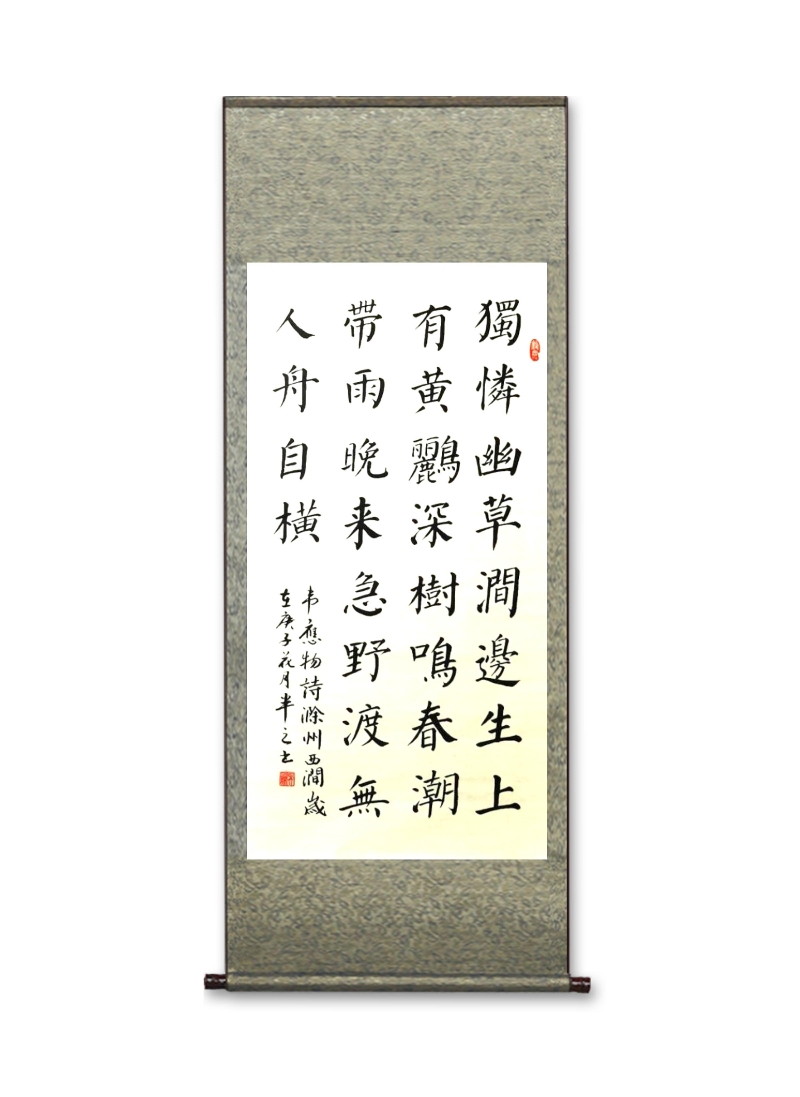 獨憐幽草澗邊生上
有黄鸝深樹鳴春潮
帶雨晚来急野渡無
人舟自橫
韦應物詩滁州西澗歲
在庚子花月半之书